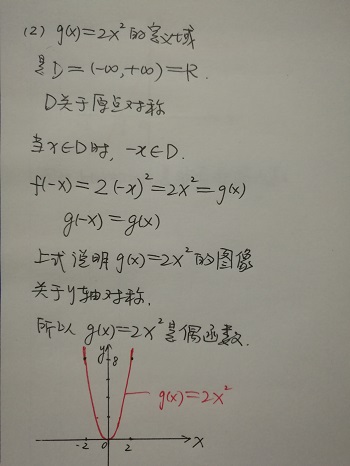 (2) g(x)=2x²的定义域
是D=(-∞,+∞)=R.
D关于原点对称
当x∈D时, -x∈D.
f(-x)=2(-x)²=2x²=g(x)
g(-x)=g(x)
上式说明g(x)=2x²的图像
关于y轴对称.
所以g(x)=2x²是偶函数.
y
8
g(x)=2x²
-2 0 2 x